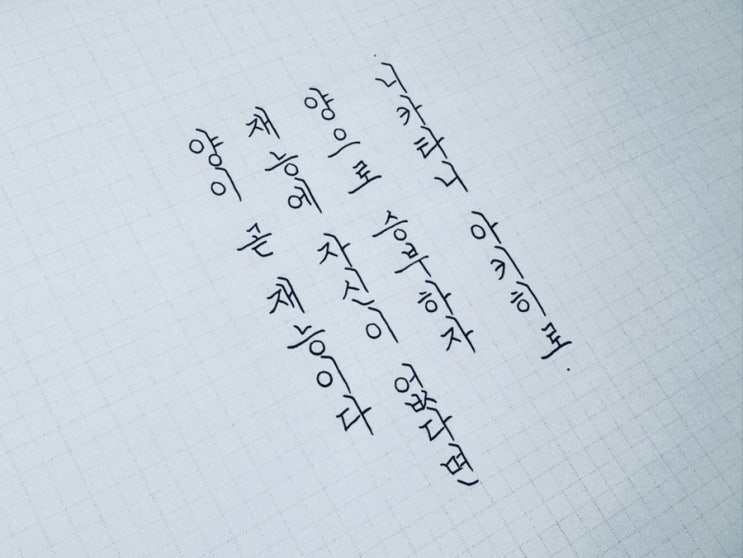 양이 곧 재능이다
재능에 자신이 없다면
양으로 승부하자
·니카타니 아키히로·